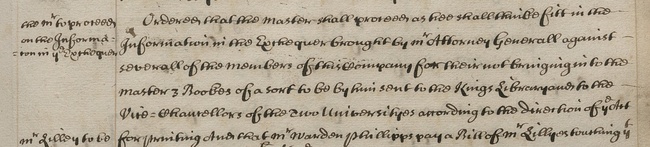 the mr to proceed
on the Informa=
=tion in ye Exchequer
Ordered that the Master shall proceed as hee shall thinke fitt in the
Information in the Exchequer brought by mr Attorney Generall against
severall of the members of this Company for their not bringing in to the
Master 3 Bookes of a sort to be by him sent to the Kings Library and to the
Vice=Chancellors of the two Universityes according to the direction of ye Act
for printing And that mr Warden Phillipps pay a Bill of mr Lillyes touching ye
mr Lilley to be